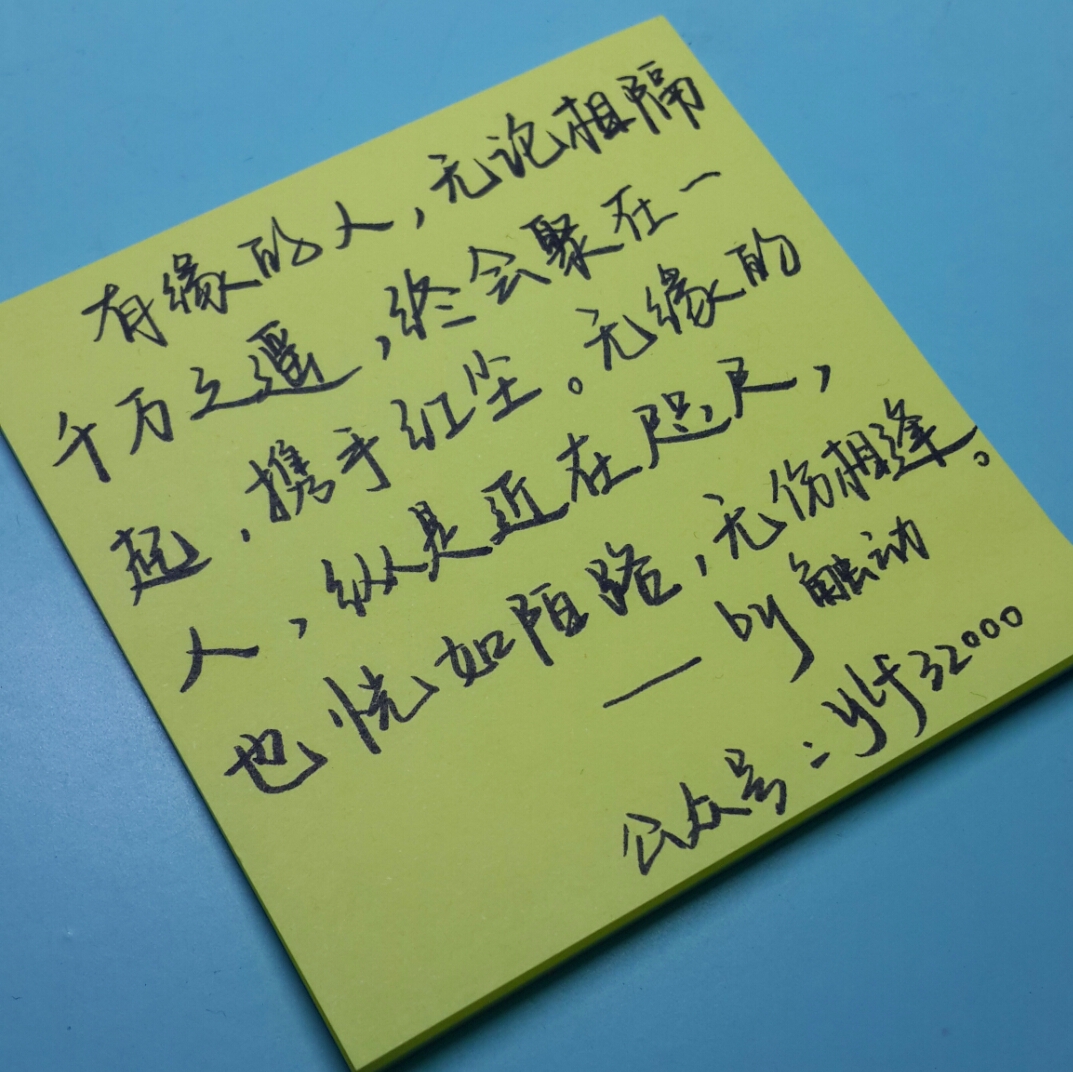 有缘的人，无论相隔
千万之遥，终会聚在一
起，携手红尘。无缘的
人，纵是近在咫尺，
也恍如陌路，无份相逢。
— by 触动
公众号：ylf32000